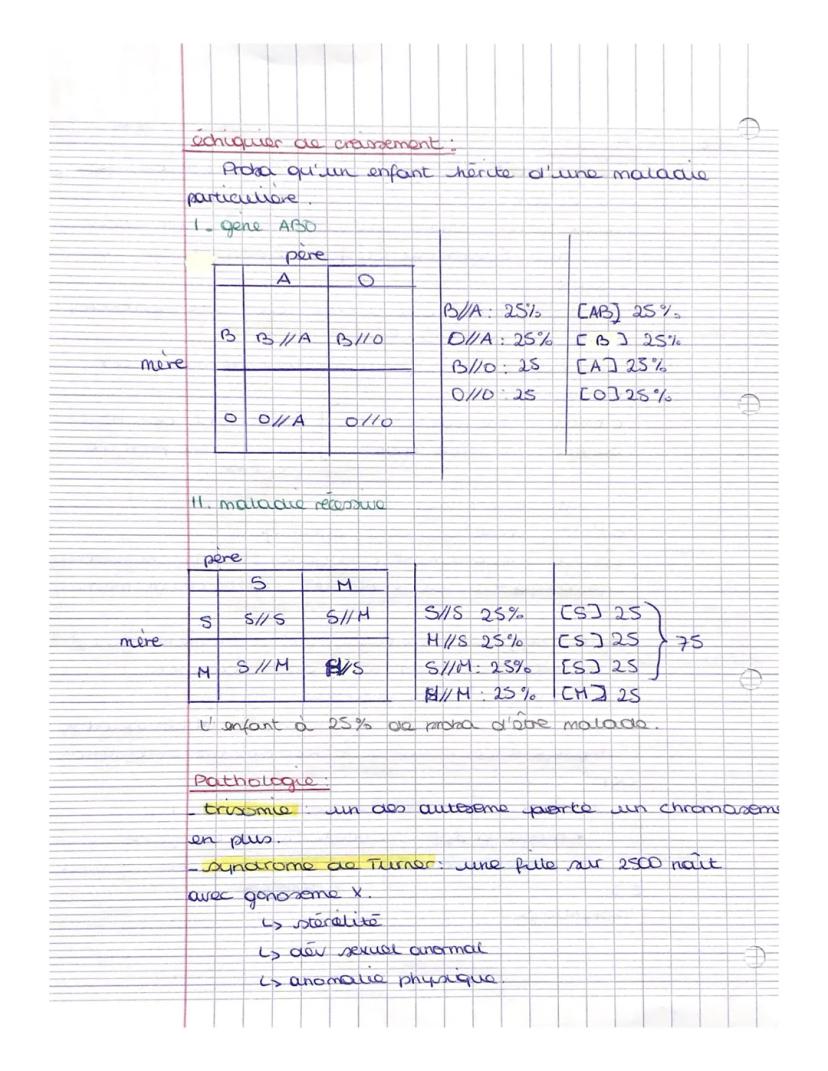 échiquier de croisement :
Proba qu'un enfant hérite d'une maladie
particulière.
I. gène ABO
père
A O
B B//A B//O
mère
O O//A O//O
B//A : 25% [AB] 25%
O//A : 25% [B] 25%
B//O : 25 [A] 25%
O//O : 25 [O] 25%
II. maladie récessive
père
S M
S S//S S//M
mère
M S//M //S
S//S 25% [S] 25
M//S 25% [S] 25 75
S//M : 25% [S] 25
//M : 25% [M] 25
L'enfant à 25% de proba d'être malade.
Pathologie :
- trisomie : un des autosome porte un chromosome
en plus.
- syndrome de Turner : une fille sur 2500 naît
avec gonosome X.
↳ stérélité
↳ dév sexuel anormal
↳ anomalie physique.